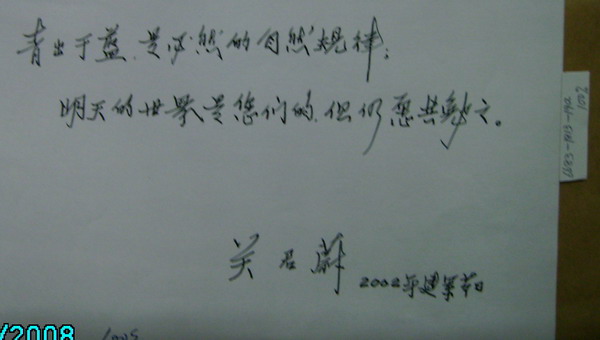 青出于蓝,是必然的自然规律;
明天的世界是您们的,但仍愿共勉之。
关君蔚
2002年建军节日
/2008